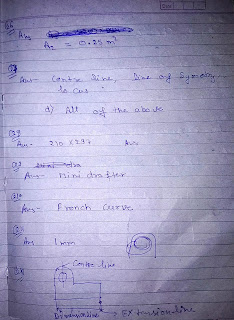 Ans
A0 = 0.25 m²
Ans- Centre line, Line of Symmetry
Locus
d) All of the above
Q3
Ans- 210 X 297 Ans
Ans- Mini drafter
Ans- French Curve
Ans 1mm
Centre line
Dimension line
Extension line